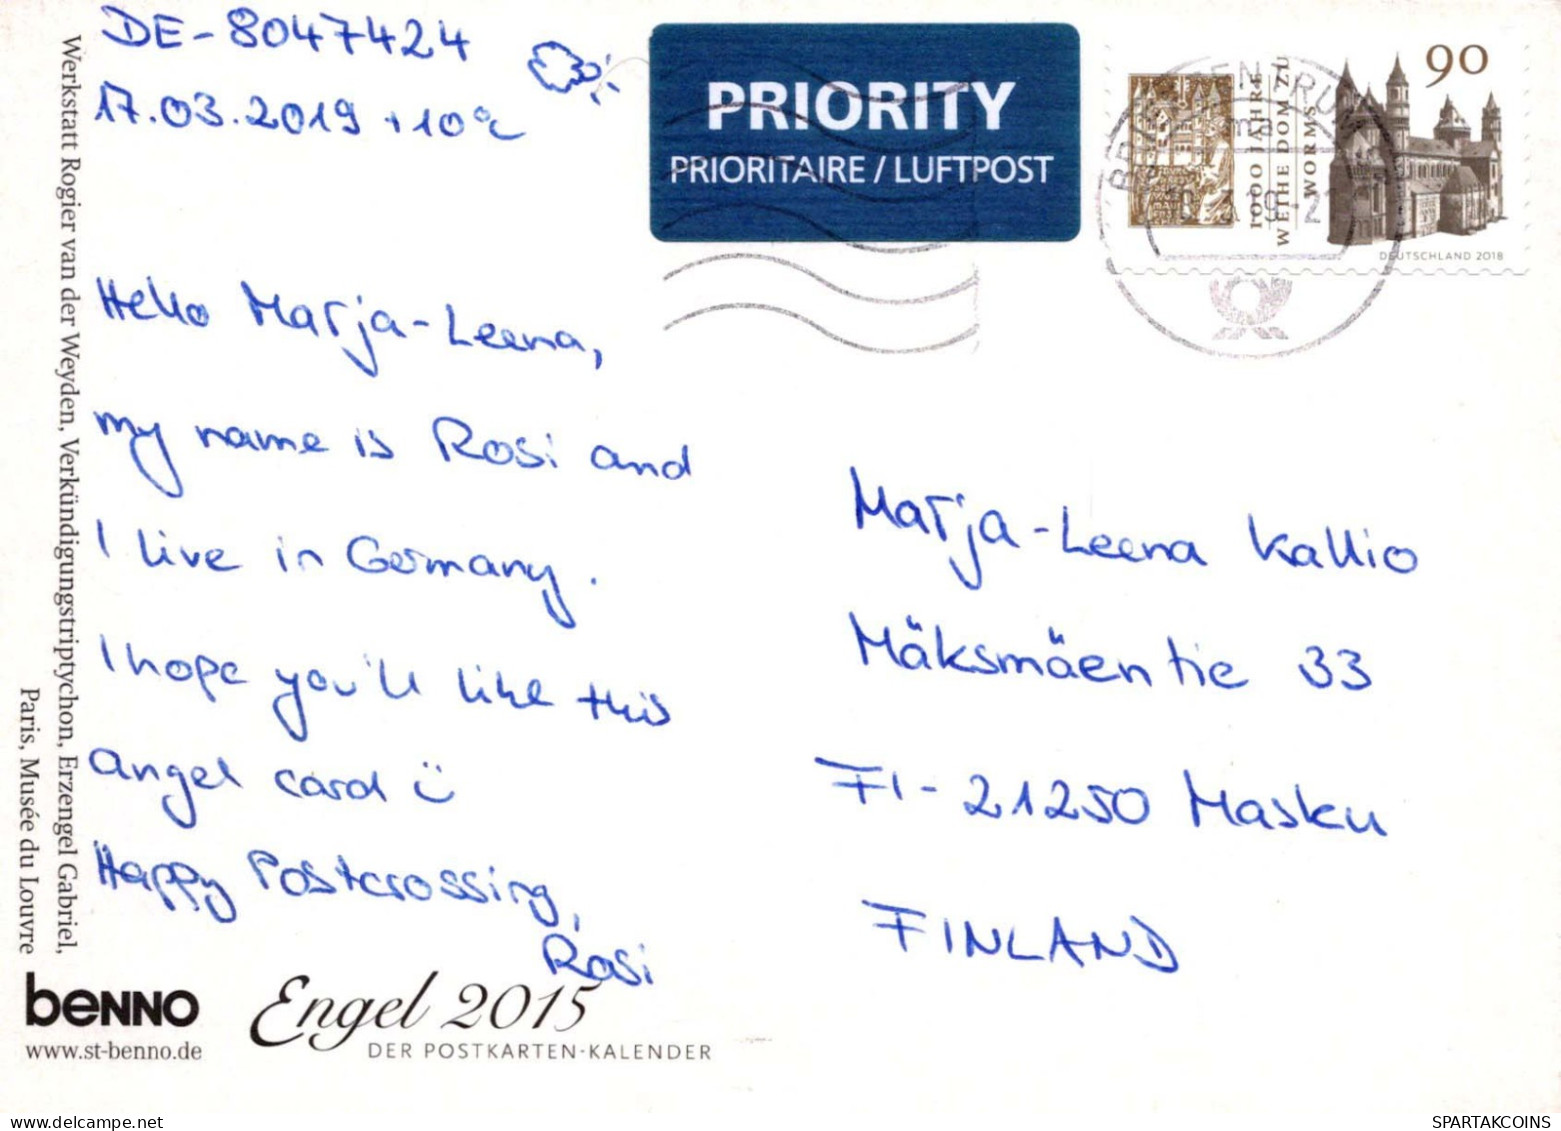 DE-8047424
17.03.2019 +10°C
PRIORITY
PRIORITAIRE / LUFTPOST
1000 JAHRE
WEIHE DOM ZU
WORMS
90
DEUTSCHLAND 2018
Werkstatt Rogier van der Weyden, Verkündigungstriptychon, Erzengel Gabriel,
Paris, Musée du Louvre
Hello Marja-Leena,
my name is Rosi and
I live in Germany.
I hope you'll like this
angel card ü
Happy Postcrossing,
Rosi
Marja-Leena Kallio
Mäksmäentie 33
FI-21250 Masku
FINLAND
benno
www.st-benno.de
Engel 2015
DER POSTKARTEN-KALENDER
SPARTAKCOINS